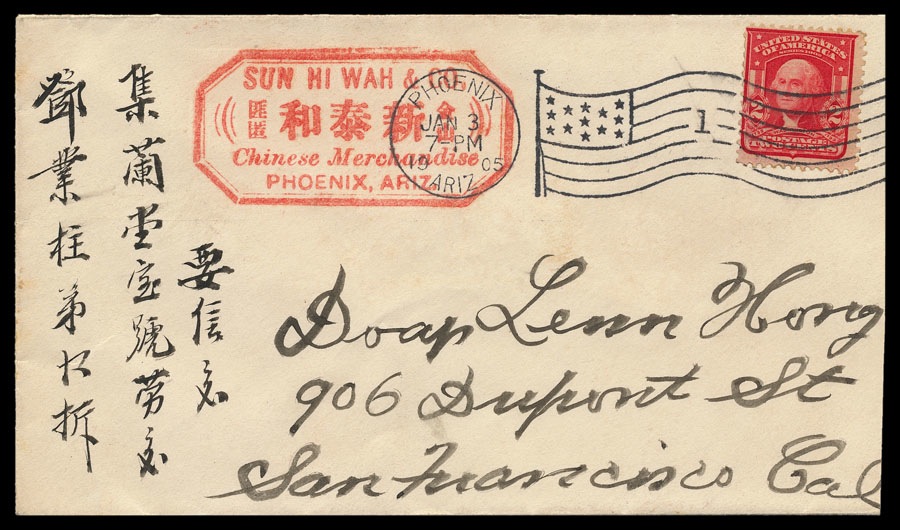 SUN HI WAH & CO
匪匿 和泰新
Chinese Merchandise
PHOENIX, ARIZ.
PHOENIX
JAN 3
7-PM
1905
ARIZ.
1
UNITED STATES
OF AMERICA
2 2
TWO CENTS
要信交
集蘭堂宝號劳交
鄧業柱弟收拆
Doap Lenn Hong
906 Dupont St
San Francisco Cal